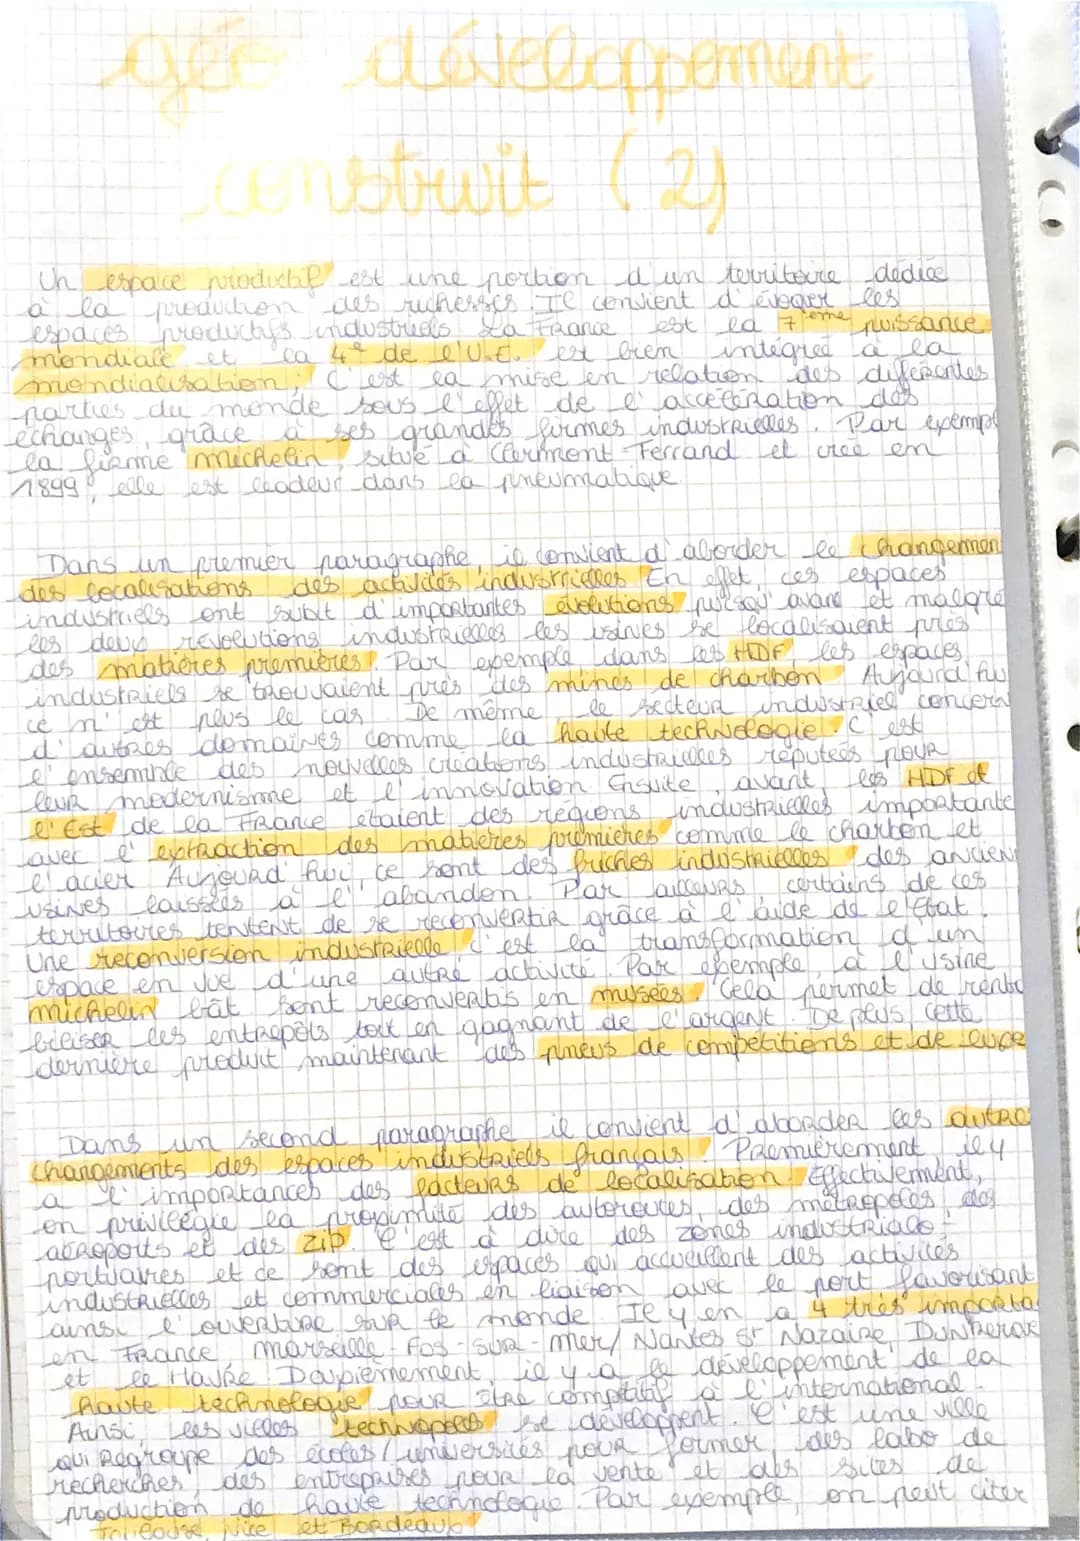 géo développement
construit (2)
Un espace productif est une portion d'un territoire dédiée
à la production des richesses. Il convient d'évoquer les
espaces productifs industriels. La France est la 7ième puissance
mondiale et la 4e de l'U.E. est bien intégrée à la
mondialisation : C'est la mise en relation des différentes
parties du monde sous l'effet de l'accélération des
échanges, grâce à ses grandes firmes industrielles. Par exempl
la firme michelin, situé à Clermont-Ferrand et créé en
1899, elle est leadeur dans la pneumatique
Dans un premier paragraphe, il convient d'aborder le changemen
des localisations des activités industrielles En effet, ces espaces
industriels ont subit d'importantes évolutions puisqu'avant et malgré
les deux révolutions industrielles les usines se localisaient près
des matières premières. Par exemple dans les HDF, les espaces
industriels se trouvaient près des mines de charbon. Aujourd'hu
ce n'est plus le cas. De même le secteur industriel concern
d'autres domaines comme la haute technologie. C'est
l'ensemble des nouvelles créations industrielles réputées pour
leur modernisme et l'innovation. Ensuite, avant, les HDF et
l'Est de la France étaient des régions industrielles importante
avec l'extraction des matières premières comme le charbon et
l'acier. Aujourd'hui, ce sont des friches industrielles des ancien
usines laissées à l'abandon. Par ailleurs, certains de ces
territoires tentent de se reconvertir grâce à l'aide de l'Etat.
Une reconversion industrielle c'est la transformation d'un
espace en vue d'une autre activité. Par exemple, à l'usine
michelin bât sont reconvertis en musées. Cela permet de renta
biliser les entrepôts tout en gagnant de l'argent. De plus, cette
dernière produit maintenant des pneus de compétitions et de luxe
Dans un second paragraphe il convient d'aborder les autres
changements des espaces industriels français. Premièrement il y
a l'importances des facteurs de localisation. Effectivement,
on privilégie la proximité des autoroutes, des métropoles, des
aéroports et des zip. C'est à dire des zones industrialo-
portuaires et ce sont des espaces qui accueillent des activités
industrielles et commerciales en liaison avec le port favorisant
ainsi l'ouverture sur le monde. Il y en a 4 très importa
en France marseille-Fos-sur-mer/ Nantes St Nazaire, Dunkerque
et le Havre. Deuxièmement, il y a le développement de la
haute technologie pour être compétitif à l'international.
Ainsi, les villes technopoles se développent. C'est une ville
qui regroupe des écoles/universités pour former, des labo de
recherches, des entreprises pour la vente et des sites de
production de haute technologie. Par exemple, on peut citer
Toulouse, Nice et Bordeaux